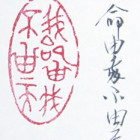 命由我不由天
我命由我
不由天